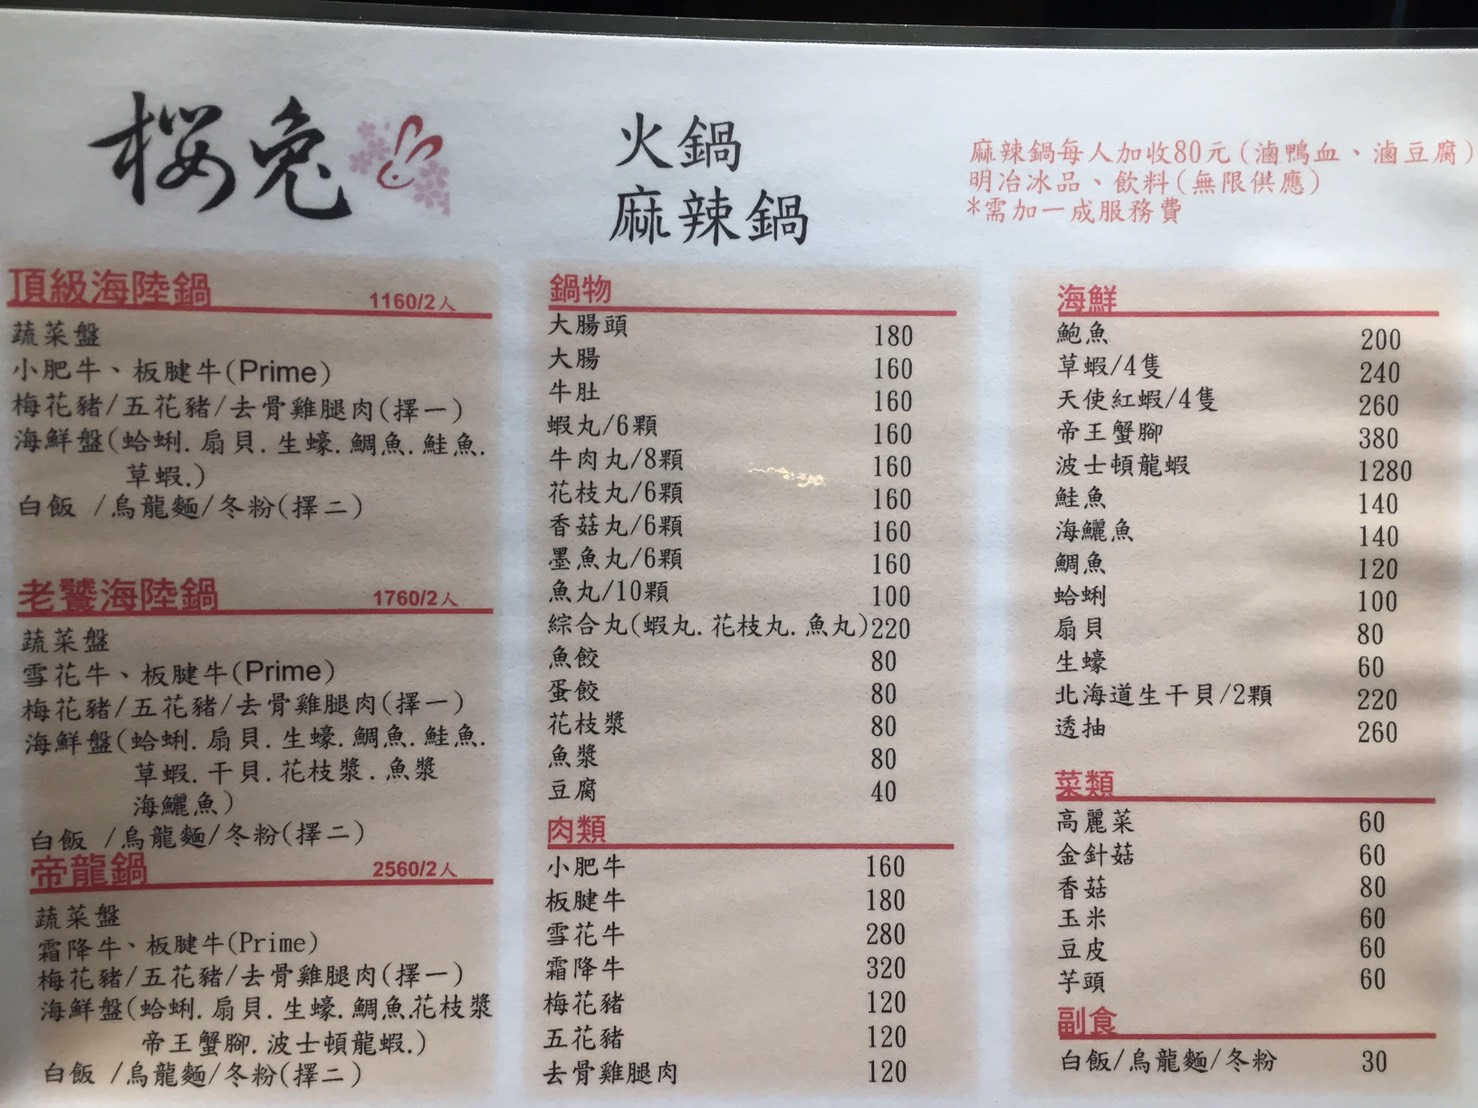 桜兔
火鍋
麻辣鍋
麻辣鍋每人加收80元(滷鴨血、滷豆腐)
明治冰品、飲料(無限供應)
*需加一成服務費
頂級海陸鍋 1160/2人
蔬菜盤
小肥牛、板腱牛(Prime)
梅花豬/五花豬/去骨雞腿肉(擇一)
海鮮盤(蛤蜊.扇貝.生蠔.鯛魚.鮭魚.
草蝦.)
白飯 /烏龍麵/冬粉(擇二)
老饕海陸鍋 1760/2人
蔬菜盤
雪花牛、板腱牛(Prime)
梅花豬/五花豬/去骨雞腿肉(擇一)
海鮮盤(蛤蜊.扇貝.生蠔.鯛魚.鮭魚.
草蝦.干貝.花枝漿.魚漿
海鱺魚)
白飯 /烏龍麵/冬粉(擇二)
帝龍鍋 2560/2人
蔬菜盤
霜降牛、板腱牛(Prime)
梅花豬/五花豬/去骨雞腿肉(擇一)
海鮮盤(蛤蜊.扇貝.生蠔.鯛魚.花枝漿
帝王蟹腳.波士頓龍蝦.)
白飯 /烏龍麵/冬粉(擇二)
鍋物
大腸頭 180
大腸 160
牛肚 160
蝦丸/6顆 160
牛肉丸/8顆 160
花枝丸/6顆 160
香菇丸/6顆 160
墨魚丸/6顆 160
魚丸/10顆 100
綜合丸(蝦丸.花枝丸.魚丸)220
魚餃 80
蛋餃 80
花枝漿 80
魚漿 80
豆腐 40
肉類
小肥牛 160
板腱牛 180
雪花牛 280
霜降牛 320
梅花豬 120
五花豬 120
去骨雞腿肉 120
海鮮
鮑魚 200
草蝦/4隻 240
天使紅蝦/4隻 260
帝王蟹腳 380
波士頓龍蝦 1280
鮭魚 140
海鱺魚 140
鯛魚 120
蛤蜊 100
扇貝 80
生蠔 60
北海道生干貝/2顆 220
透抽 260
菜類
高麗菜 60
金針菇 60
香菇 80
玉米 60
豆皮 60
芋頭 60
副食
白飯/烏龍麵/冬粉 30